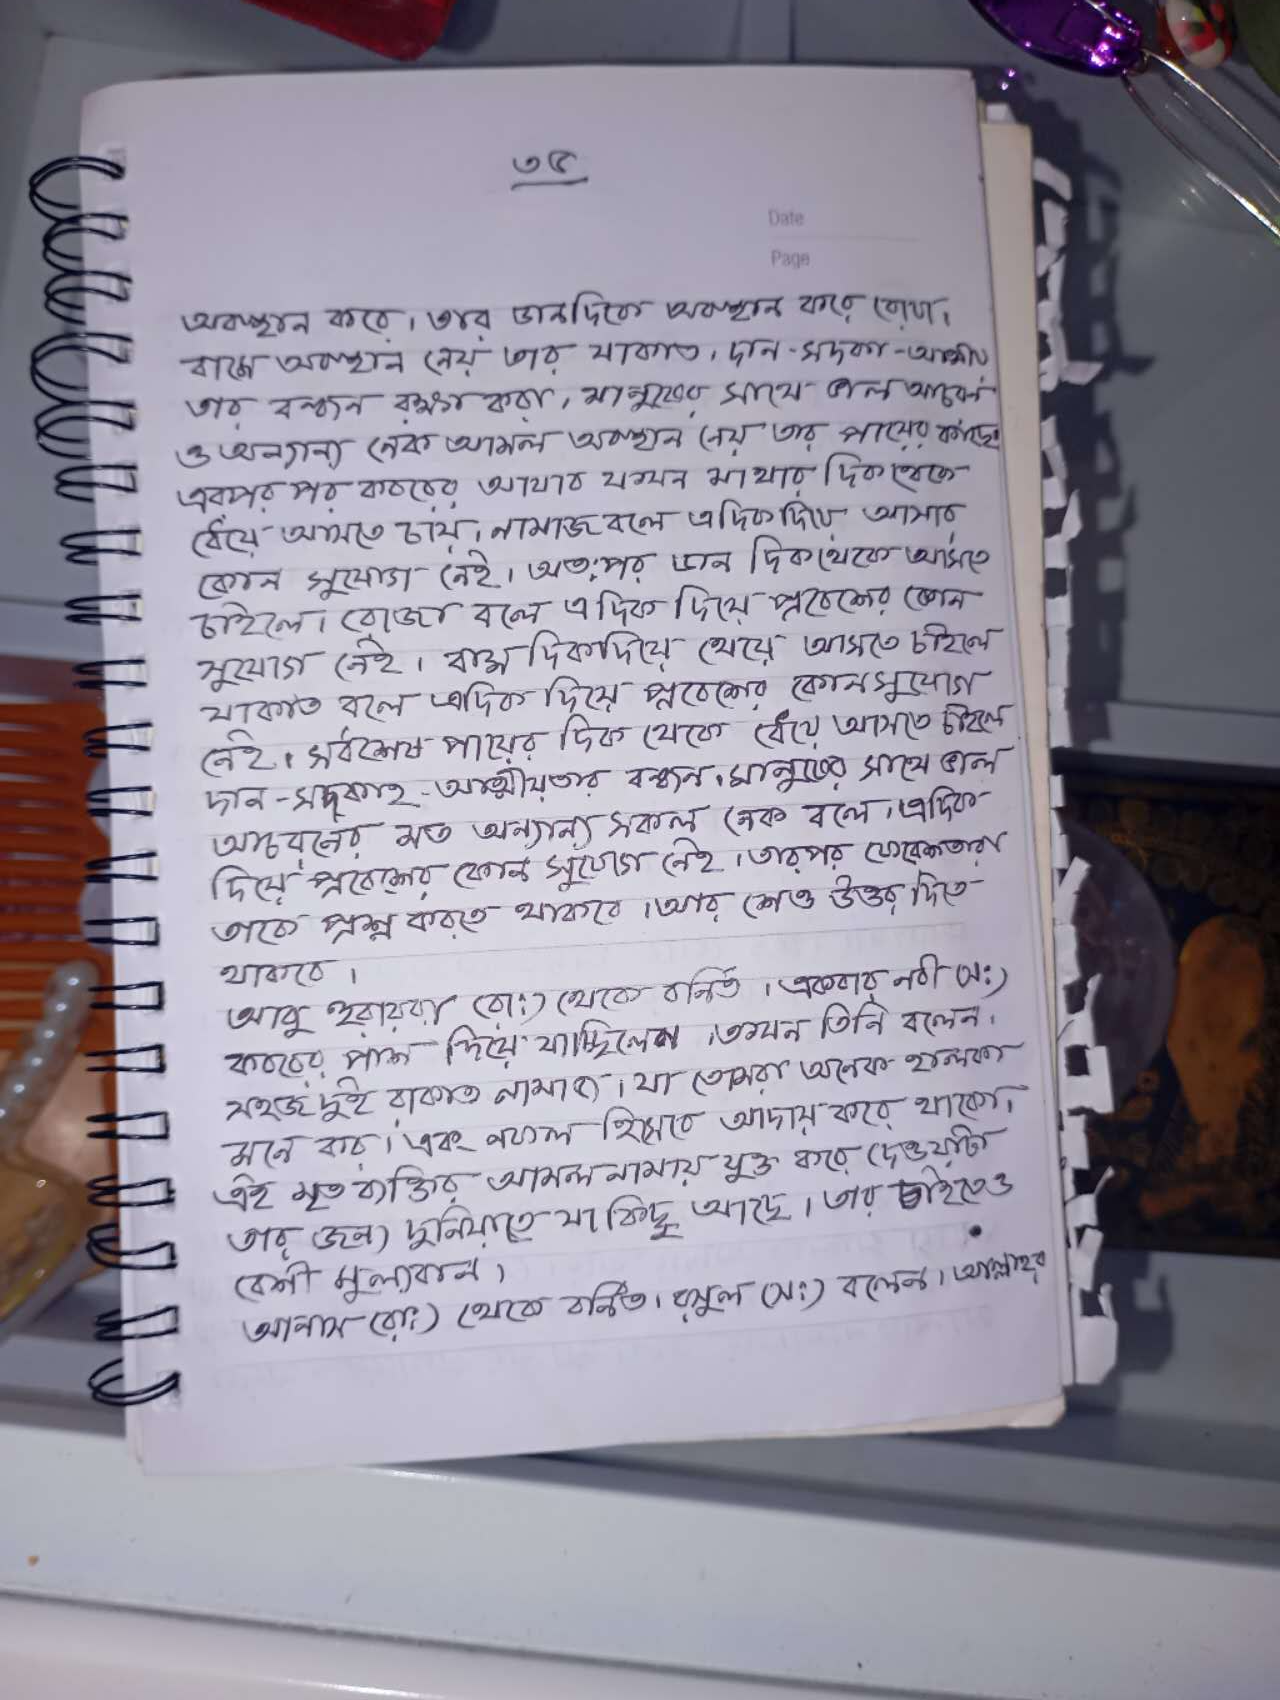 ৩৫
Date
Page
অবস্থান করে। তার ডানদিকে অবস্থান করে রোযা।
বামে অবস্থান নেয় তার যাকাত। দান-সদকা-আত্মীয়
তার বন্ধন রক্ষা করা, মানুষের সাথে ভাল আচরন
ও অন্যান্য নেক আমল অবস্থান নেয় তার পায়ের কাছে।
এরপর পর কবরের আযাব যখন মাথার দিক থেকে
ধেঁয়ে আসতে চায়। নামাজ বলে এদিক দিয়ে আসার
কোন সুযোগ নেই। অতঃপর ডান দিক থেকে আসতে
চাইলে। রোজা বলে এ দিক দিয়ে প্রবেশের কোন
সুযোগ নেই। বাম দিক দিয়ে ধেয়ে আসতে চাইলে
যাকাত বলে এদিক দিয়ে প্রবেশের কোন সুযোগ
নেই। সর্বশেষ পায়ের দিক থেকে ধেঁয়ে আসতে চাইলে
দান-সদকাহ-আত্মীয়তার বন্ধন। মানুষের সাথে ভাল
আচরনের মত অন্যান্য সকল নেক বলে। এদিক
দিয়ে প্রবেশের কোন সুযোগ নেই। তারপর ফেরেশতারা
তাকে প্রশ্ন করতে থাকবে। আর সেও উত্তর দিতে
থাকবে।
আবু হুরায়রা (রাঃ) থেকে বর্নিত। একবার নবী (সঃ)
কবরের পাশ দিয়ে যাচ্ছিলেন। তখন তিনি বলেন।
সহজ দুই রাকাত নামায। যা তোমরা অনেক হালকা
মনে কর। এবং নফল হিসেবে আদায় করে থাকো।
এই মৃত ব্যক্তির আমল নামায় যুক্ত করে দেওয়াটা
তার জন্য দুনিয়াতে যা কিছু আছে। তার চাইতেও
বেশী মুল্যবান।
আনাস (রাঃ) থেকে বর্নিত। রসুল (সঃ) বলেন। আল্লাহর